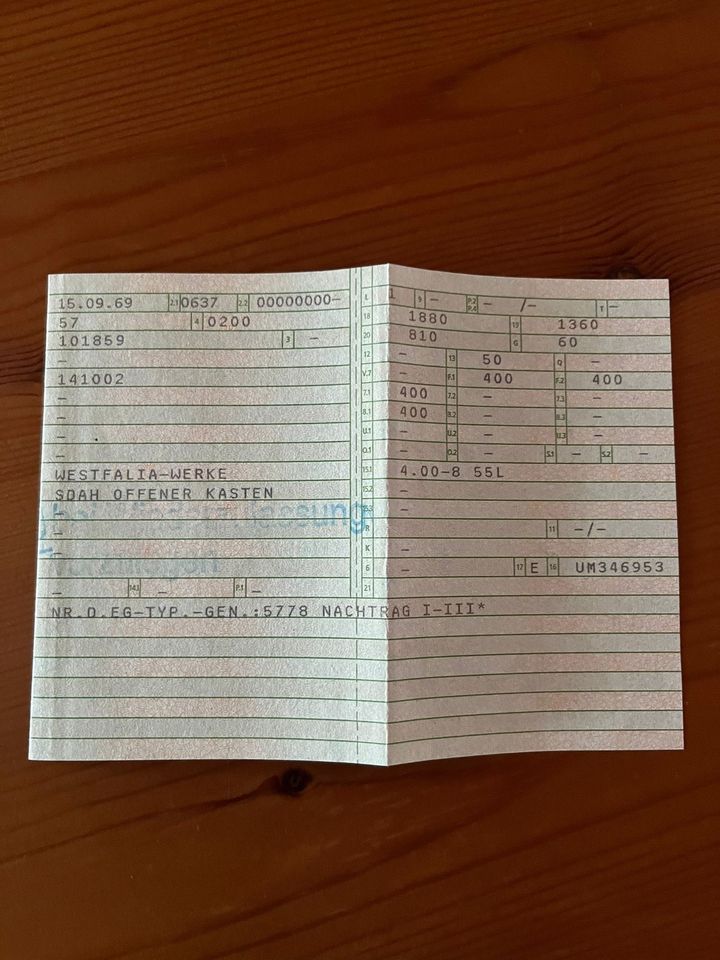 15.09.69 2.1 0637 2.2 00000000- L 1 9 - P.2 P.4 - /- T -
57 4 0200 18 1880 19 1360
101859 3 - 20 810 G 60
- 12 - 13 50 Q -
141002 V.7 - F.1 400 F.2 400
- 7.1 400 7.2 - 7.3 -
- 8.1 400 8.2 - 8.3 -
- U.1 - U.2 - U.3 -
- O.1 - O.2 - S.1 - S.2 -
WESTFALIA-WERKE 15.1 4.00-8 55L
SDAH OFFENER KASTEN 15.2 -
15.3 -
R - 11 -/-
K -
- 6 - 17 E 16 UM346953
- 14.1 - P.1 - 21
NR.D.EG-TYP.-GEN.:5778 NACHTRAG I-III*